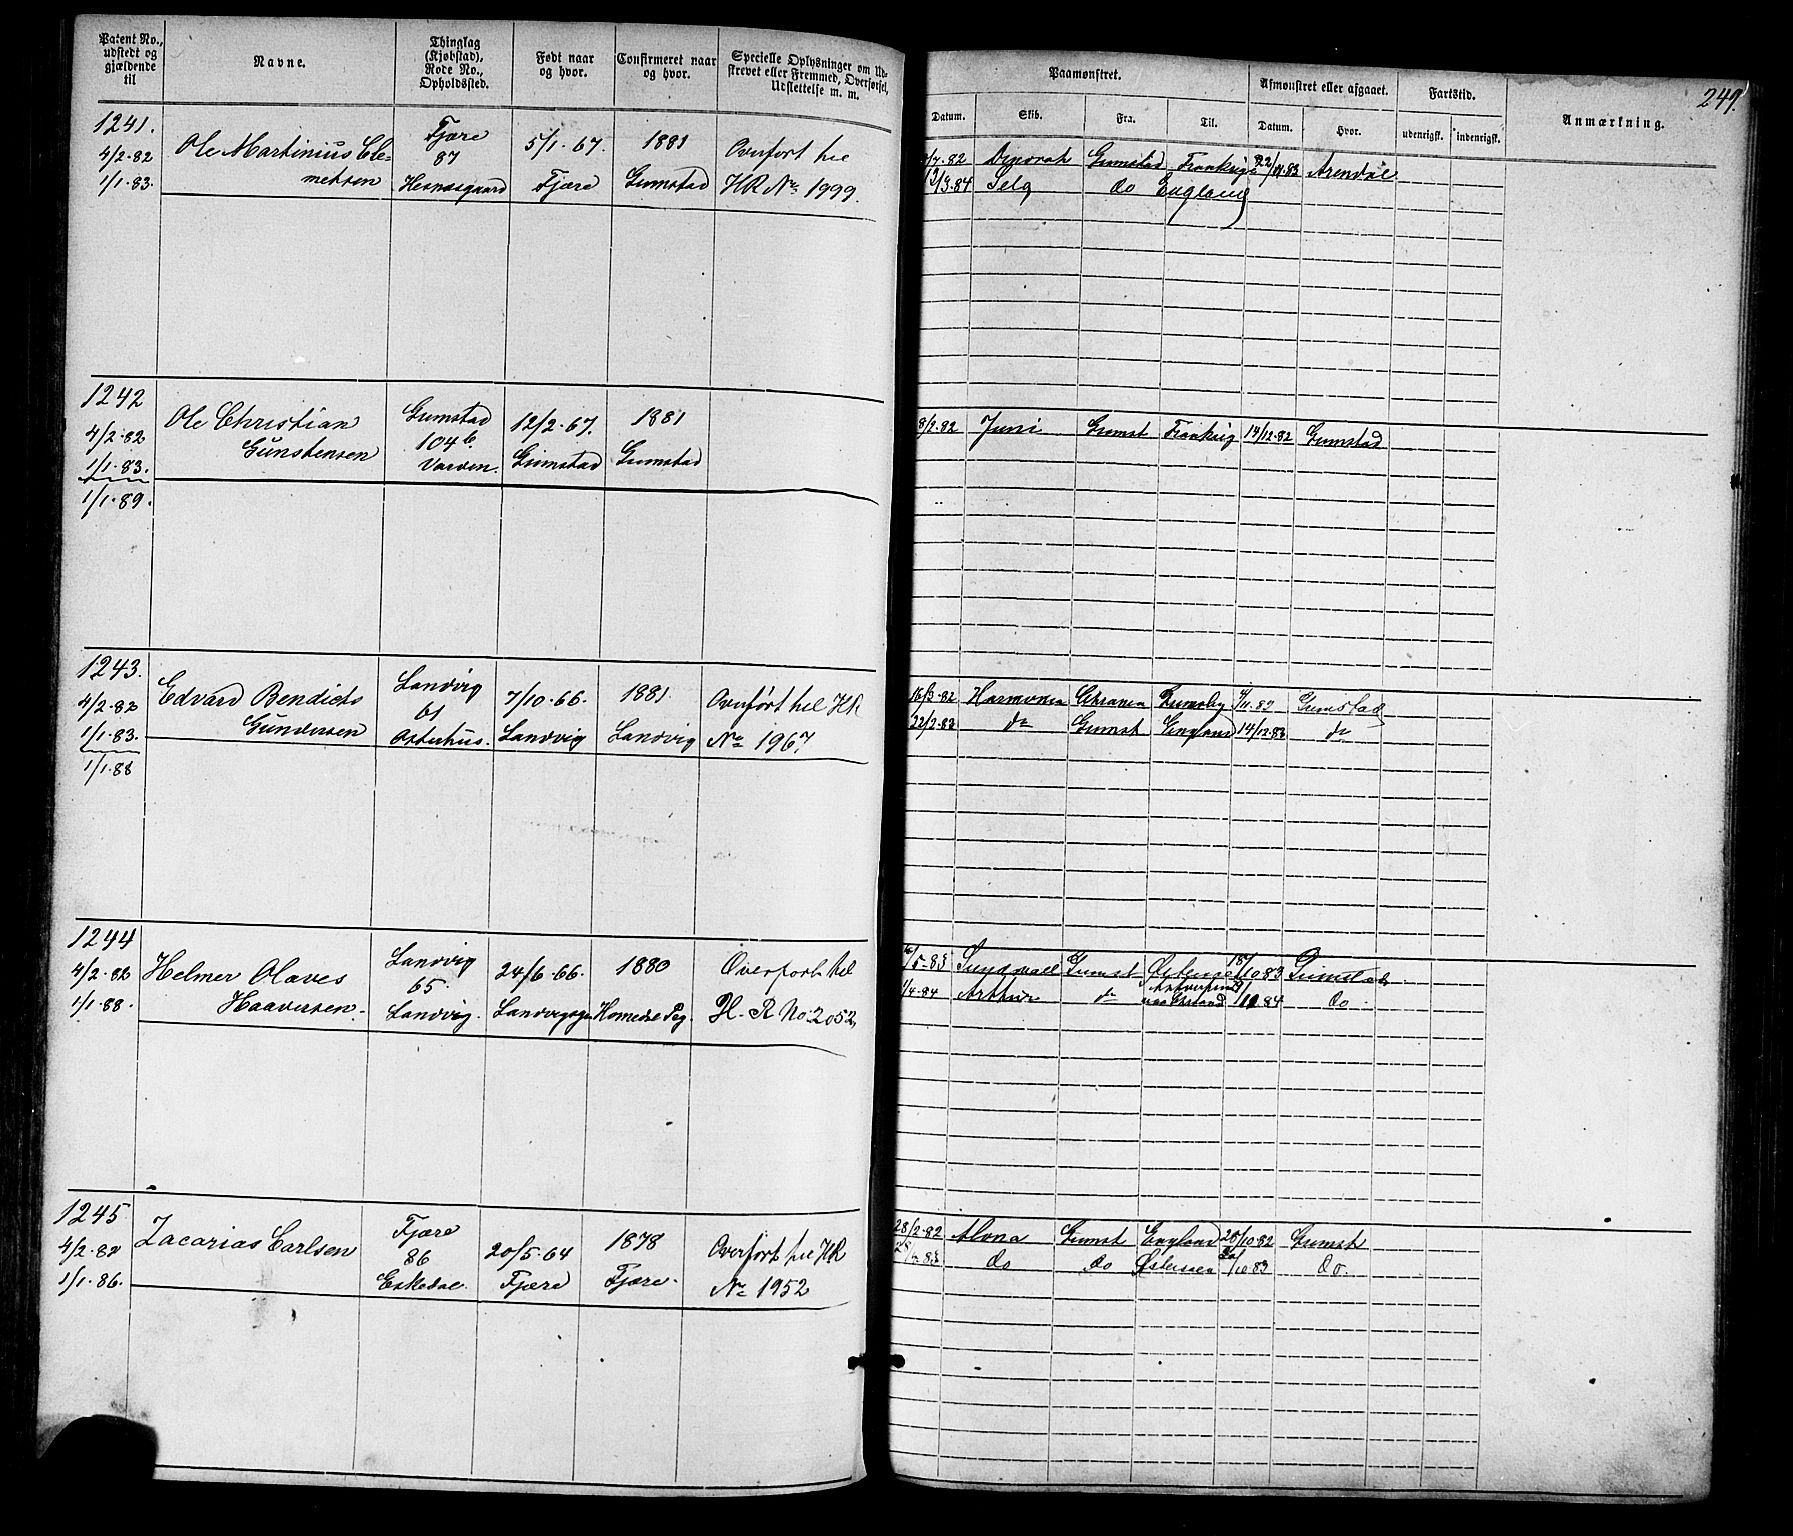 Patent No., udstedt og gjældende til
Navne.
Thinglag (Kjøbstad), Rode No., Opholdssted.
Født naar og hvor.
Confirmeret naar og hvor.
Specielle Oplysninger om Udskrevet eller Fremmed, Overførsel, Udslettelse m. m.
Paamønstret.
Afmønstret eller afgaaet.
Fartstid.
Anmærkning.
249.
Datum.
Skib.
Fra.
Til.
Datum.
Hvor.
udenrigsk.
indenrigsk.
1241.
4/2-82
1/1-83.
Ole Martinius Cle-
metsen
Fjære
87
Hesnæsgaard
5/1-67.
Fjære
1881
Grimstad
Overført til
HR No 1999.
/7-82 Grimstad Frankrig 22/ 83 Arendal
/3-84 Selg do England
1242
4/2-82
1/1-83.
1/1-89.
Ole Christian
Gunstensen
Grimstad
104 b.
Varden.
12/2-67.
Grimstad
1881
Grimstad
8/2-82 Juni Grimst Frankrig 14/12-82 Grimstad
1243.
4/2-82
1/1-83.
1/1-88
Edvard Bendicts
Gundersen
Landvig
61
Østerhus.
7/10-66.
Landvig
1881.
Landvig
Overført til HR
No 1967
16/3-82 Harmonia Grimsby /11-82 Grimstad
22/2-83 do Grimst England 14/12-83 do
1244
4/2-82
1/1-88.
Helmer Olaves
Haaversen
Landvig
65.
Landvig.
24/6-66.
1880
Homedal Pg.
Overført til
H. R No: 2052,
/5-83 Sundvall Grimst 18/10 83 Grimstad
/4-84 Arthur do /10 84 do
1245
4/2-82
1/1-86.
Zacarias Carlsen
Fjære
86
Eskedal.
20/5-64
Fjære
1878
Fjære.
Overført til HR
No 1952
28/2-82 Alvna Grimst England 25/10-82 Grimst
do do Østersøen /10 83 do.